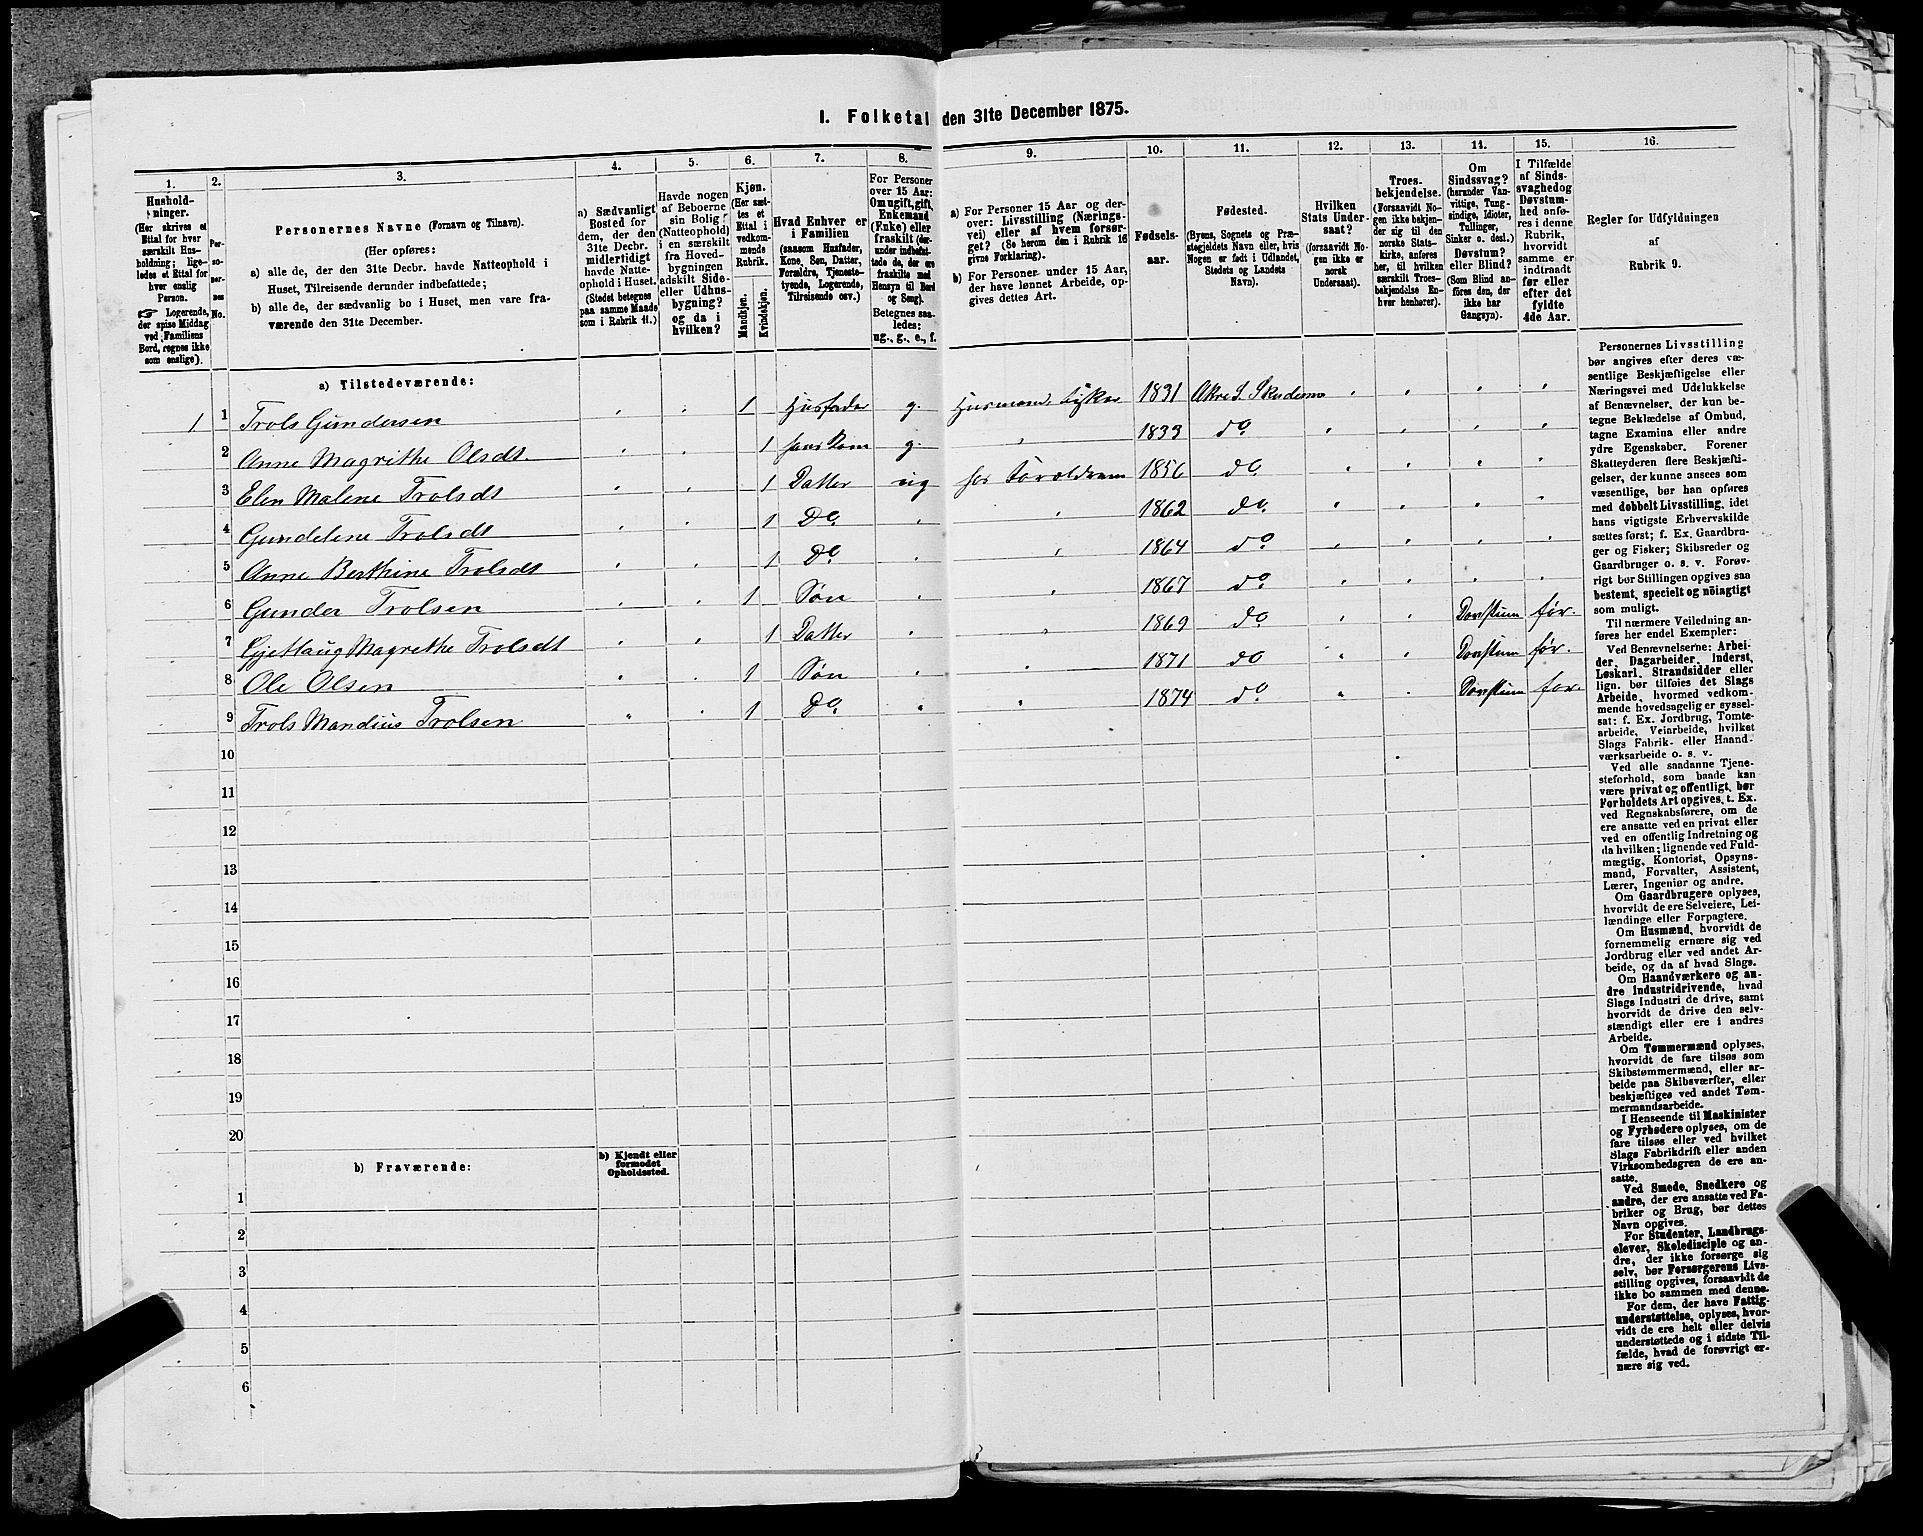 I. Folketal den 31te December 1875.
1. 2. 3. 4. 5. 6. 7. 8. 9. 10. 11. 12. 13. 14. 15. 16.
Hushold-
ninger.
(Her skrives et
Ettal for hver
særskilt Hus-
holdning; lige-
ledes et Ettal for
hver enslig
Person.
☞ Logerende,
der spise Middag
ved Familiens
Bord, regnes ikke
som enslige).
Per-
so-
ner-
nes
No.
Personernes Navne (Fornavn og Tilnavn).
(Her opføres:
a) alle de, der den 31te Decbr. havde Natteophold i
Huset, Tilreisende derunder indbefattede;
b) alle de, der sædvanlig bo i Huset, men vare fra-
værende den 31te December.
a) Sædvanligt
Bosted for
dem, der den
31te Decbr.
midlertidigt
havde Natte-
ophold i Huset.
(Stedet betegnes
paa samme Maade
som i Rubrik 11.)
Havde nogen
af Beboerne
sin Bolig
(Natteophold)
i en særskilt
fra Hoved-
bygningen
adskilt Side-
eller Udhus-
bygning?
og da i
hvilken?
Kjøn.
(Her sæt-
tes et
Ettal i
vedkom-
mende
Rubrik.
Mandkjøn.
Kvindekjøn.
Hvad Enhver er
i Familien
(saasom Husfader,
Kone, Søn, Datter,
Forældre, Tjeneste-
tyende, Logerende,
Tilreisende osv.)
For Personer
over 15 Aar:
Om ugift, gift,
Enkemand
(Enke) eller
fraskilt (der-
under indbefat-
tede de, der ere
fraskilte med
Hensyn til Bord
og Seng).
Betegnes saa-
ledes:
ug., g., e., f.
a) For Personer 15 Aar og der-
over: Livsstilling (Nærings-
vei) eller af hvem forsør-
get? (Se herom den i Rubrik 16
givne Forklaring).
b) For Personer under 15 Aar,
der have lønnet Arbeide, op-
gives dettes Art.
Fødsels-
aar.
Fødested.
(Byens, Sognets og Præ-
stegjeldets Navn eller, hvis
Nogen er født i Udlandet,
Stedets og Landets
Navn).
Hvilken
Stats Under-
saat?
(forsaavidt No-
gen ikke er
norsk
Undersaat).
Troes-
bekjendelse.
(Forsaavidt No-
gen ikke bekjen-
der sig til den
norske Stats-
kirke, anføres
her, til hvilken
særskilt Troes-
bekjendelse En-
hver henhører).
Om
Sindssvag?
(herunder Van-
vittige, Tung-
sindige, Idioter,
Tullinger,
Sinker o. desl.)
Døvstum?
eller Blind?
(Som Blind an-
føres den, der
ikke har
Gangsyn).
I Tilfælde
af Sinds-
svaghed og
Døvstum-
hed anfø-
res i denne
Rubrik,
hvorvidt
samme er
indtraadt
før eller
efter det
fyldte
4de Aar.
Regler for Udfyldningen
af
Rubrik 9.
a) Tilstedeværende:
1 1 Trols Gundersen 1 Husfader g. Husmand, Fisker 1831 Akre S. Skudenes
2 Anne Magrithe Olsdt. 1 hans Kone g. 1833 do
3 Elen Malene Trolsdt 1 Datter ug hos Foroldrene 1856 do
4 Gundelene Trolsdt 1 Do 1862 do
5 Anne Berthine Trolsdt 1 Do 1864 do
6 Gunder Trolsen 1 Søn 1867 do
7 Gjetlaug Magrethe Trolsdt 1 Datter 1869 do Dovstum før.
8 Ole Olsen 1 Søn 1871 do Dovstum før.
9 Trols Mandius Trolsen 1 Do 1874 do Dovstum før.
10
11
12
13
14
15
16
17
18
19
20
b) Fraværende:
b) Kjendt eller
formodet
Opholdssted.
1
2
3
4
5
6
Personernes Livsstilling
bør angives efter deres væ-
sentlige Beskjæftigelse eller
Næringsvei med Udelukkelse
af Benævnelser, der kun be-
tegne Beklædelse af Ombud,
tagne Examina eller andre
ydre Egenskaber. Forener
Skatteyderen flere Beskjæfti-
gelser, der kunne ansees som
væsentlige, bør han opføres
med dobbelt Livsstilling, idet
hans vigtigste Erhvervskilde
sættes først; f. Ex. Gaardbru-
ger og Fisker; Skibsreder og
Gaardbruger o. s. v. Forøv-
rigt bør Stillingen opgives saa
bestemt, specielt og nöiagtigt
som muligt.
Til nærmere Veiledning an-
føres her endel Exempler:
Ved Benævnelserne: Arbei-
der, Dagarbeider, Inderst,
Løskarl, Strandsidder eller
lign. bør tilføies det Slags
Arbeide, hvormed vedkom-
mende hovedsagelig er syssel-
sat: f. Ex. Jordbrug, Tomte-
arbeide, Veiarbeide, hvilket
Slags Fabrik- eller Haand-
værksarbeide o. s. v.
Ved alle saadanne Tjene-
steforhold, som baade kan
være privat og offentligt, bør
Forholdets Art opgives, t. Ex.
ved Regnskabsførere, om de
ere ansatte ved en privat eller
ved en offentlig Indretning og
da hvilken; lignende ved Fuld-
mægtig, Kontorist, Opsyns-
mand, Forvalter, Assistent,
Lærer, Ingeniør og andre.
Om Gaardbrugere oplyses,
hvorvidt de ere Selveiere, Lei-
lændinge eller Forpagtere.
Om Husmænd, hvorvidt de
fornemmelig ernære sig ved
Jordbrug eller ved andet Ar-
beide, og da af hvad Slags.
Om Haandværkere og an-
dre Industridrivende, hvad
Slags Industri de drive, samt
hvorvidt de drive den selv-
stændigt eller ere i andres
Arbeide.
Om Tømmermænd oplyses,
hvorvidt de fare tilsøs som
Skibstømmermænd, eller ar-
beide paa Skibsværfter, eller
beskjæftiges ved andet Tøm-
mermandsarbeide.
I Henseende til Maskinister
og Fyrbødere oplyses, om de
fare tilsøs eller ved hvilket
Slags Fabrikdrift eller anden
Virksomhedsgren de ere an-
satte.
Ved Smede, Snedkere og
andre, der ere ansatte ved Fa-
briker og Brug, bør dettes
Navn opgives.
For Studenter, Landbrugs-
elever, Skoledisciple og an-
dre, der ikke forsørge sig
selv, bør Forsørgerens Livs-
stilling opgives, forsaavidt de
ikke bo sammen med denne.
For dem, der have Fattig-
understøttelse, oplyses, hvor-
vidt de ere helt eller delvis
understøttede og i sidste Til-
fælde, hvad de forøvrigt er-
nære sig ved.